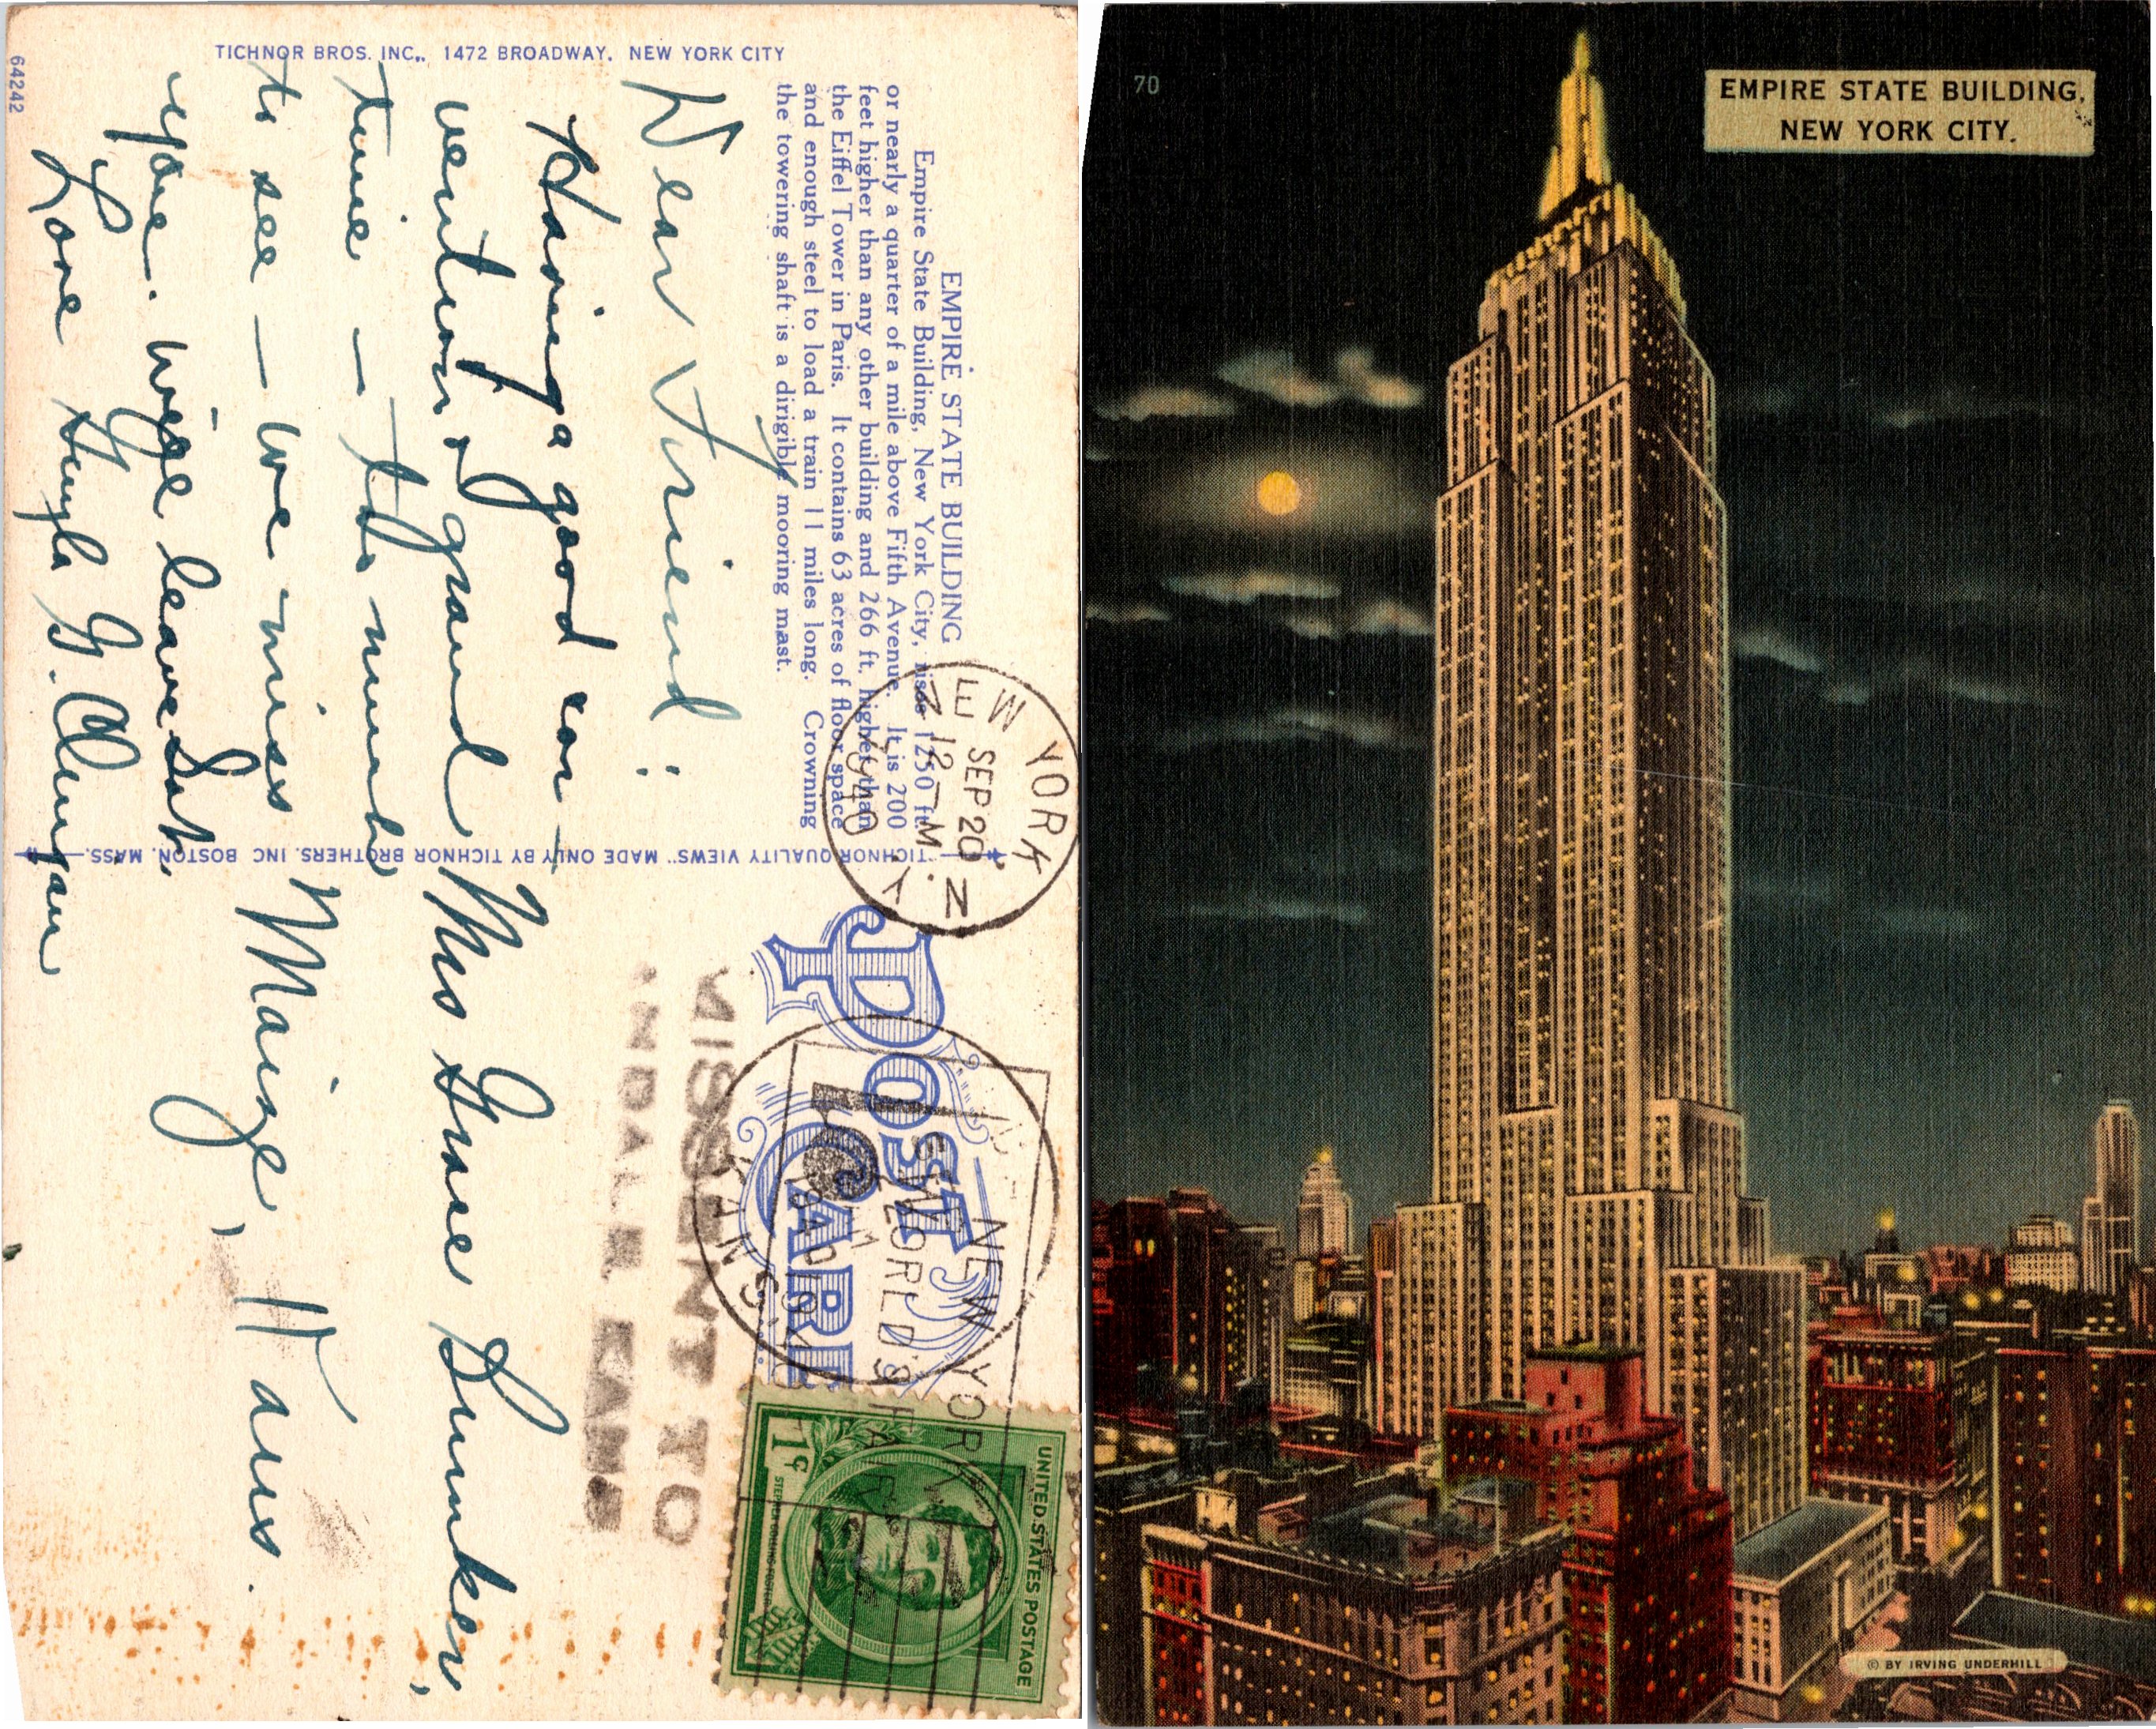 TICHNOR BROS. INC., 1472 BROADWAY, NEW YORK CITY
64242
EMPIRE STATE BUILDING
Empire State Building, New York City, rises 1250 ft.
or nearly a quarter of a mile above Fifth Avenue. It is 200
feet higher than any other building and 266 ft. higher than
the Eiffel Tower in Paris. It contains 63 acres of floor space
and enough steel to load a train 11 miles long. Crowning
the towering shaft is a dirigible mooring mast.
Dear Friend:
Having a good con-
vention & grand
time - too much
to see - we miss
you. We leave Sat.
Love
"TICHNOR QUALITY VIEWS." MADE ONLY BY TICHNOR BROTHERS. INC BOSTON. MASS.
POST CARD
NEW YORK, N.Y.
SEP 20
12-M
1940
NEW YORK
WORLD'S FAIR
KANS.
1940
MISSENT TO
KANS
UNITED STATES POSTAGE
1¢
STEPHEN COLLINS FOSTER
Mrs Grace Dunker,
Maize, Kans.
70
EMPIRE STATE BUILDING,
NEW YORK CITY.
© BY IRVING UNDERHILL